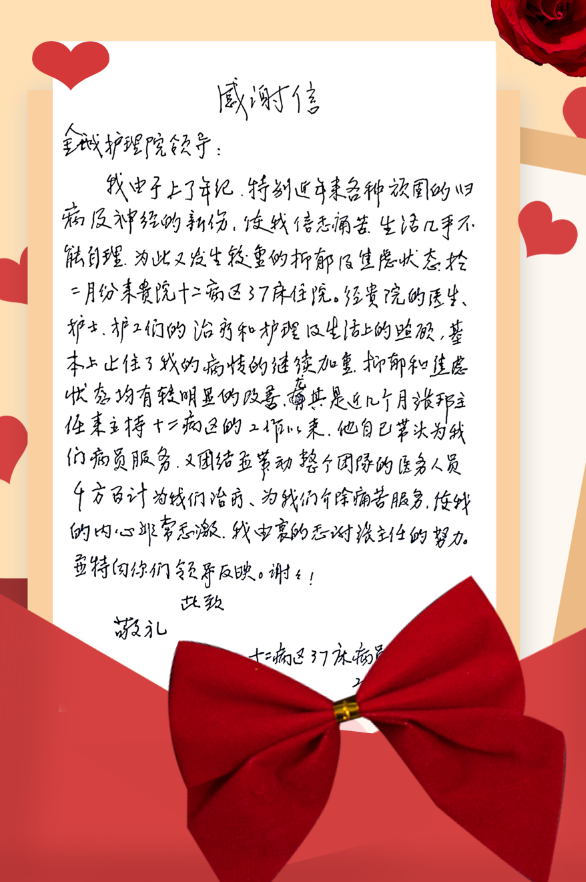 感谢信
金城护理院领导：
我由于上了年纪，特别近年来各种顽固的旧
病及神经的新伤，使我倍感痛苦，生活几乎不
能自理，为此又发生较重的抑郁及焦虑状态，於
二月份来贵院十二病区37床住院。经贵院的医生、
护士、护工们的治疗和护理及生活上的照顾，基
本上止住了我的病情的继续加重，抑郁和焦虑
状态均有较明显的改善，尤其是近几个月张邦主
任来主持十二病区的工作以来，他自己带头为我
们病员服务，又团结并带动整个团队的医务人员
千方百计为我们治疗、为我们解除痛苦服务，使我
的内心非常感激，我由衷的感谢张主任的努力。
并特向你们领导反映。谢々！
此致
敬礼
十二病区37床病员
2